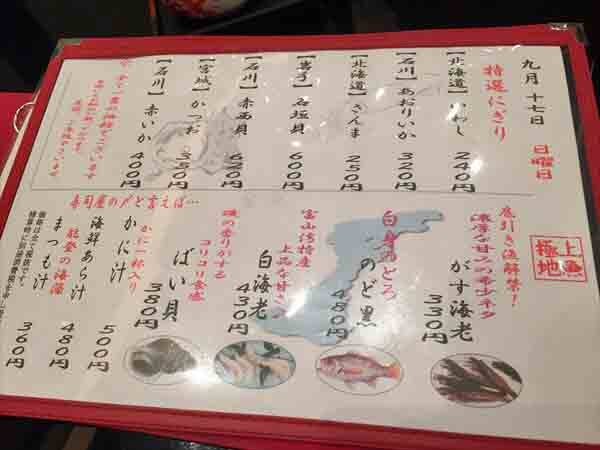 九月十七日 日曜日
特選にぎり
【北海道】いわし 240円
【石川】あおりいか 320円
【北海道】さんま 250円
【岩手】石垣貝 600円
【石川】赤西貝 620円
【宮城】かつお 350円
【石川】赤いか 400円
極上
地魚
底引き漁解禁!
濃厚な甘みの希少ネタ
がす海老 330円
白身のとろ
のど黒 480円
富山湾特産
上品な甘さ
白海老 430円
磯の香りがする
コリコリ食感
ばい貝 380円
寿司屋の〆と言えば…
かに一杯入り
かに汁 500円
海鮮あら汁 480円
能登の海藻
まつも汁 360円
価格は全て税抜です。